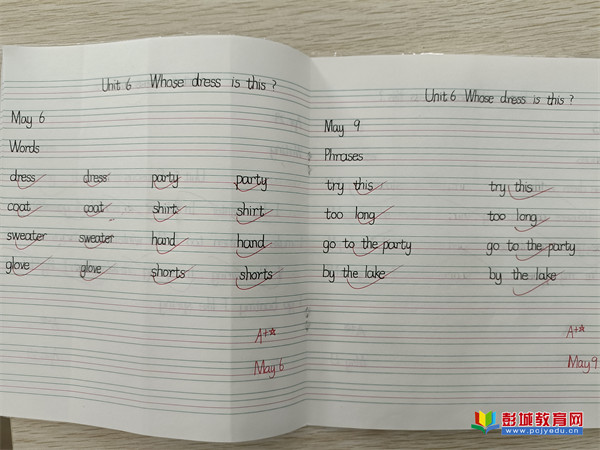 Unit 6 Whose dress is this?
May 6
Words
dress dress party party
coat coat shirt shirt
sweater sweater hand hand
glove glove shorts shorts
A+☆
May 6
Unit 6 Whose dress is this?
May 9
Phrases
try this try this
too long too long
go to the party go to the party
by the lake by the lake
A+☆
May 9
彭城教育网
www.pcjyedu.cn